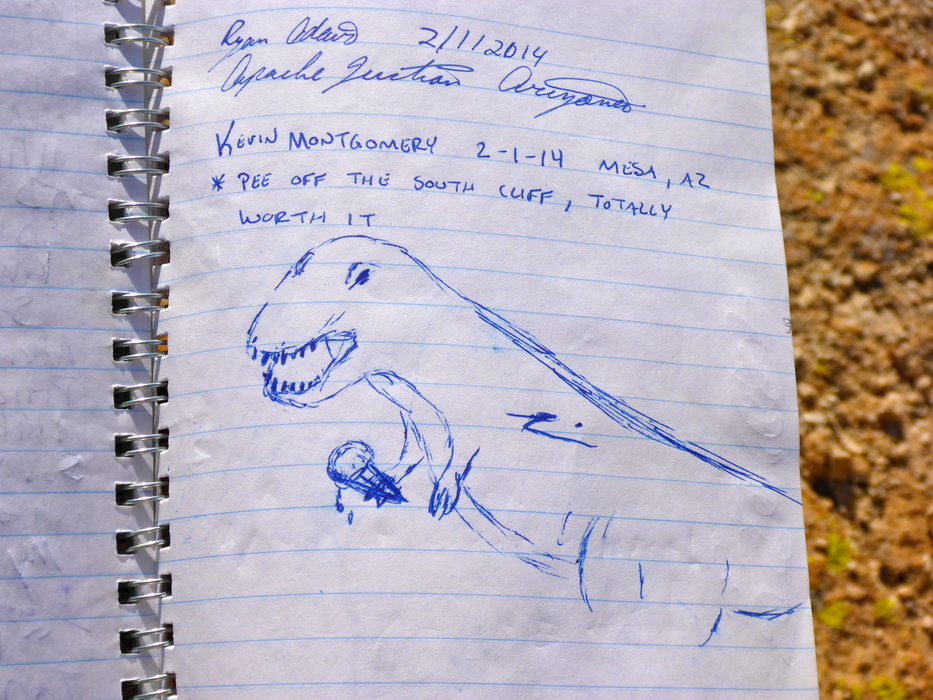 Ryan Adams 2/11/2014
Apache Junction Arizona
KEVIN MONTGOMERY 2-1-14 MESA, AZ
* PEE OFF THE SOUTH CLIFF, TOTALLY
WORTH IT